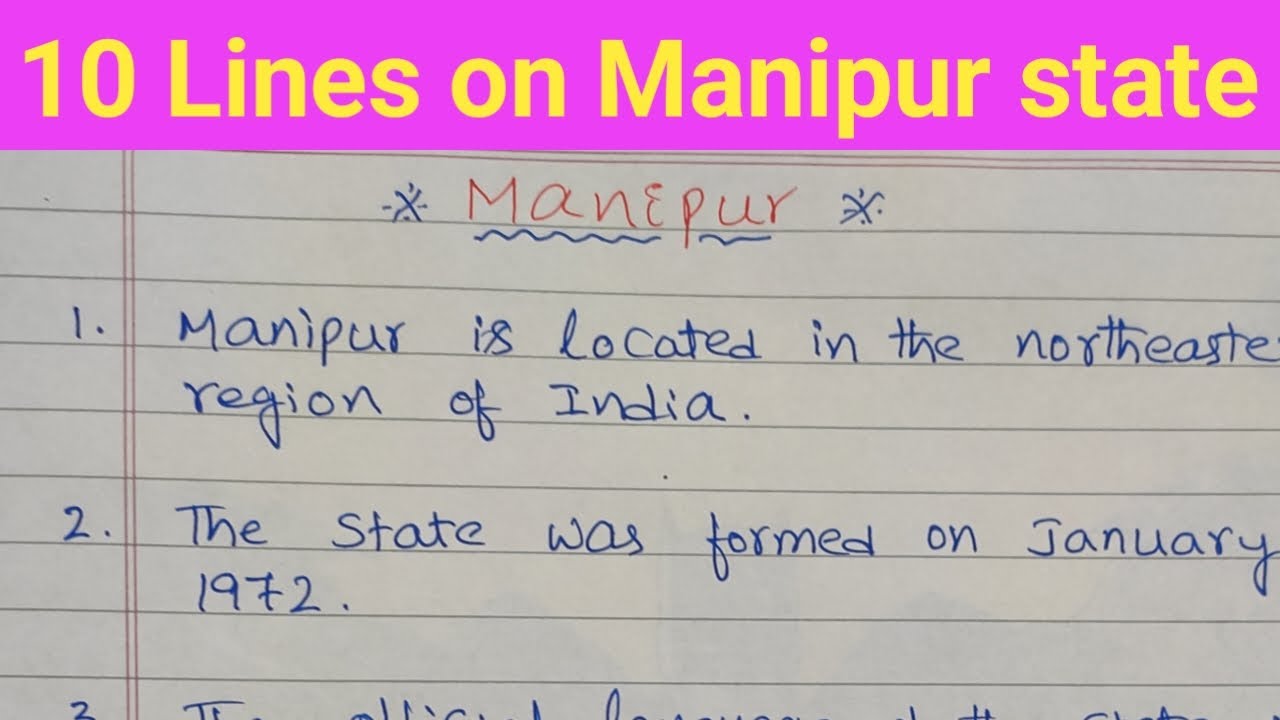 10 Lines on Manipur state
Manipur
1. Manipur is located in the northeaste
region of India.
2. The State was formed on January
1972.
3. The official language of the state